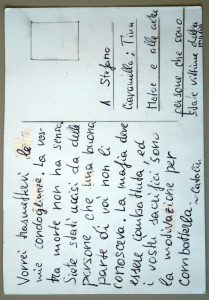 Vorrei trasmettervi le
mie condoglianze. La vos-
tra morte non ha senso.
Siete stati uccisi da delle
persone che una buona
parte di voi non li
conosceva. La mafia deve
essere combattuta, ed
i vostri sacrifici sono
la motivazione per
combatterla.
A Stefano
Ciaramella; Tina
Motoc e alle altre
persone che sono
state vittime della
mafia